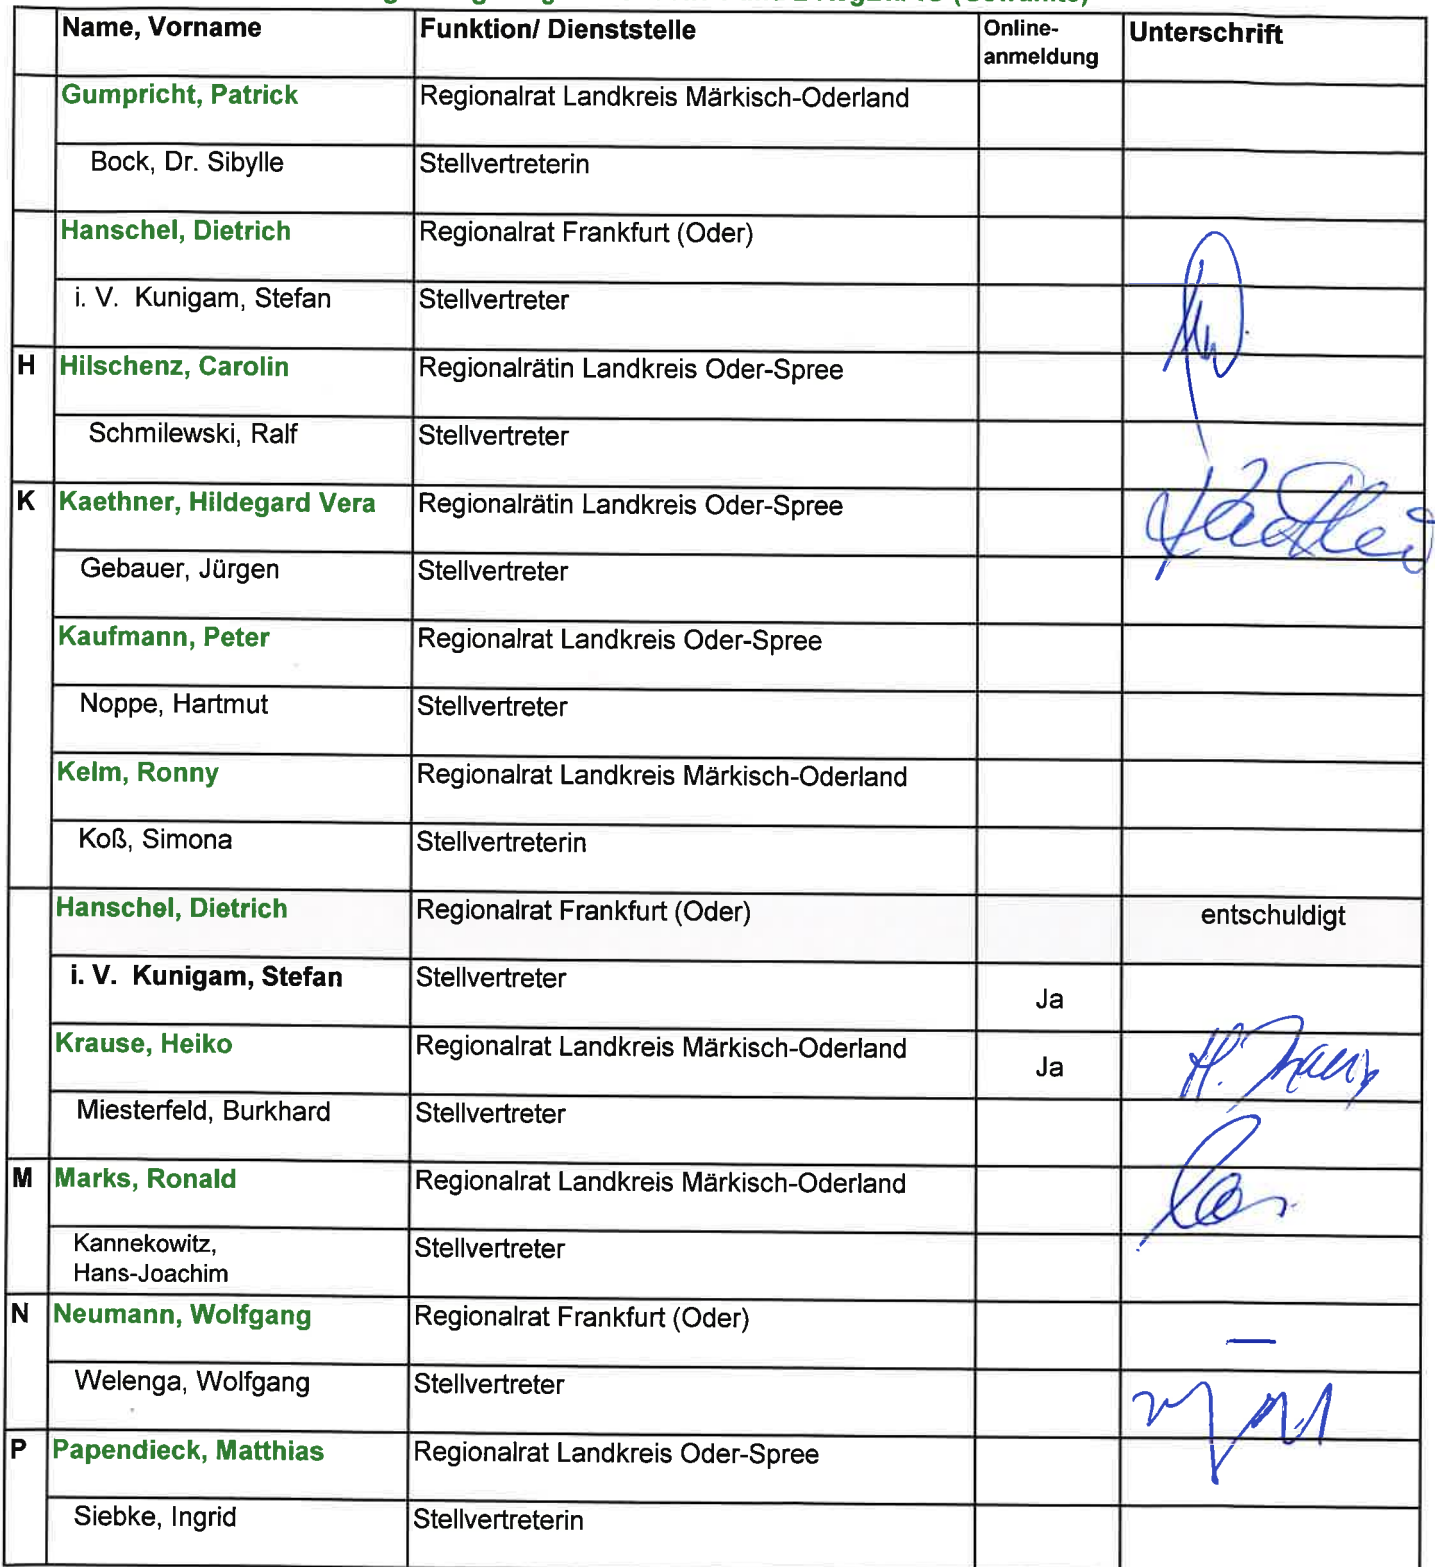 Name, Vorname Funktion/ Dienststelle Online-anmeldung Unterschrift
Gumpricht, Patrick Regionalrat Landkreis Märkisch-Oderland
Bock, Dr. Sibylle Stellvertreterin
Hanschel, Dietrich Regionalrat Frankfurt (Oder)
i. V. Kunigam, Stefan Stellvertreter
H Hilschenz, Carolin Regionalrätin Landkreis Oder-Spree
Schmilewski, Ralf Stellvertreter
K Kaethner, Hildegard Vera Regionalrätin Landkreis Oder-Spree
Gebauer, Jürgen Stellvertreter
Kaufmann, Peter Regionalrat Landkreis Oder-Spree
Noppe, Hartmut Stellvertreter
Kelm, Ronny Regionalrat Landkreis Märkisch-Oderland
Koß, Simona Stellvertreterin
Hanschel, Dietrich Regionalrat Frankfurt (Oder) entschuldigt
i. V. Kunigam, Stefan Stellvertreter Ja
Krause, Heiko Regionalrat Landkreis Märkisch-Oderland Ja
Miesterfeld, Burkhard Stellvertreter
M Marks, Ronald Regionalrat Landkreis Märkisch-Oderland
Kannekowitz,
Hans-Joachim Stellvertreter
N Neumann, Wolfgang Regionalrat Frankfurt (Oder) —
Welenga, Wolfgang Stellvertreter
P Papendieck, Matthias Regionalrat Landkreis Oder-Spree
Siebke, Ingrid Stellvertreterin